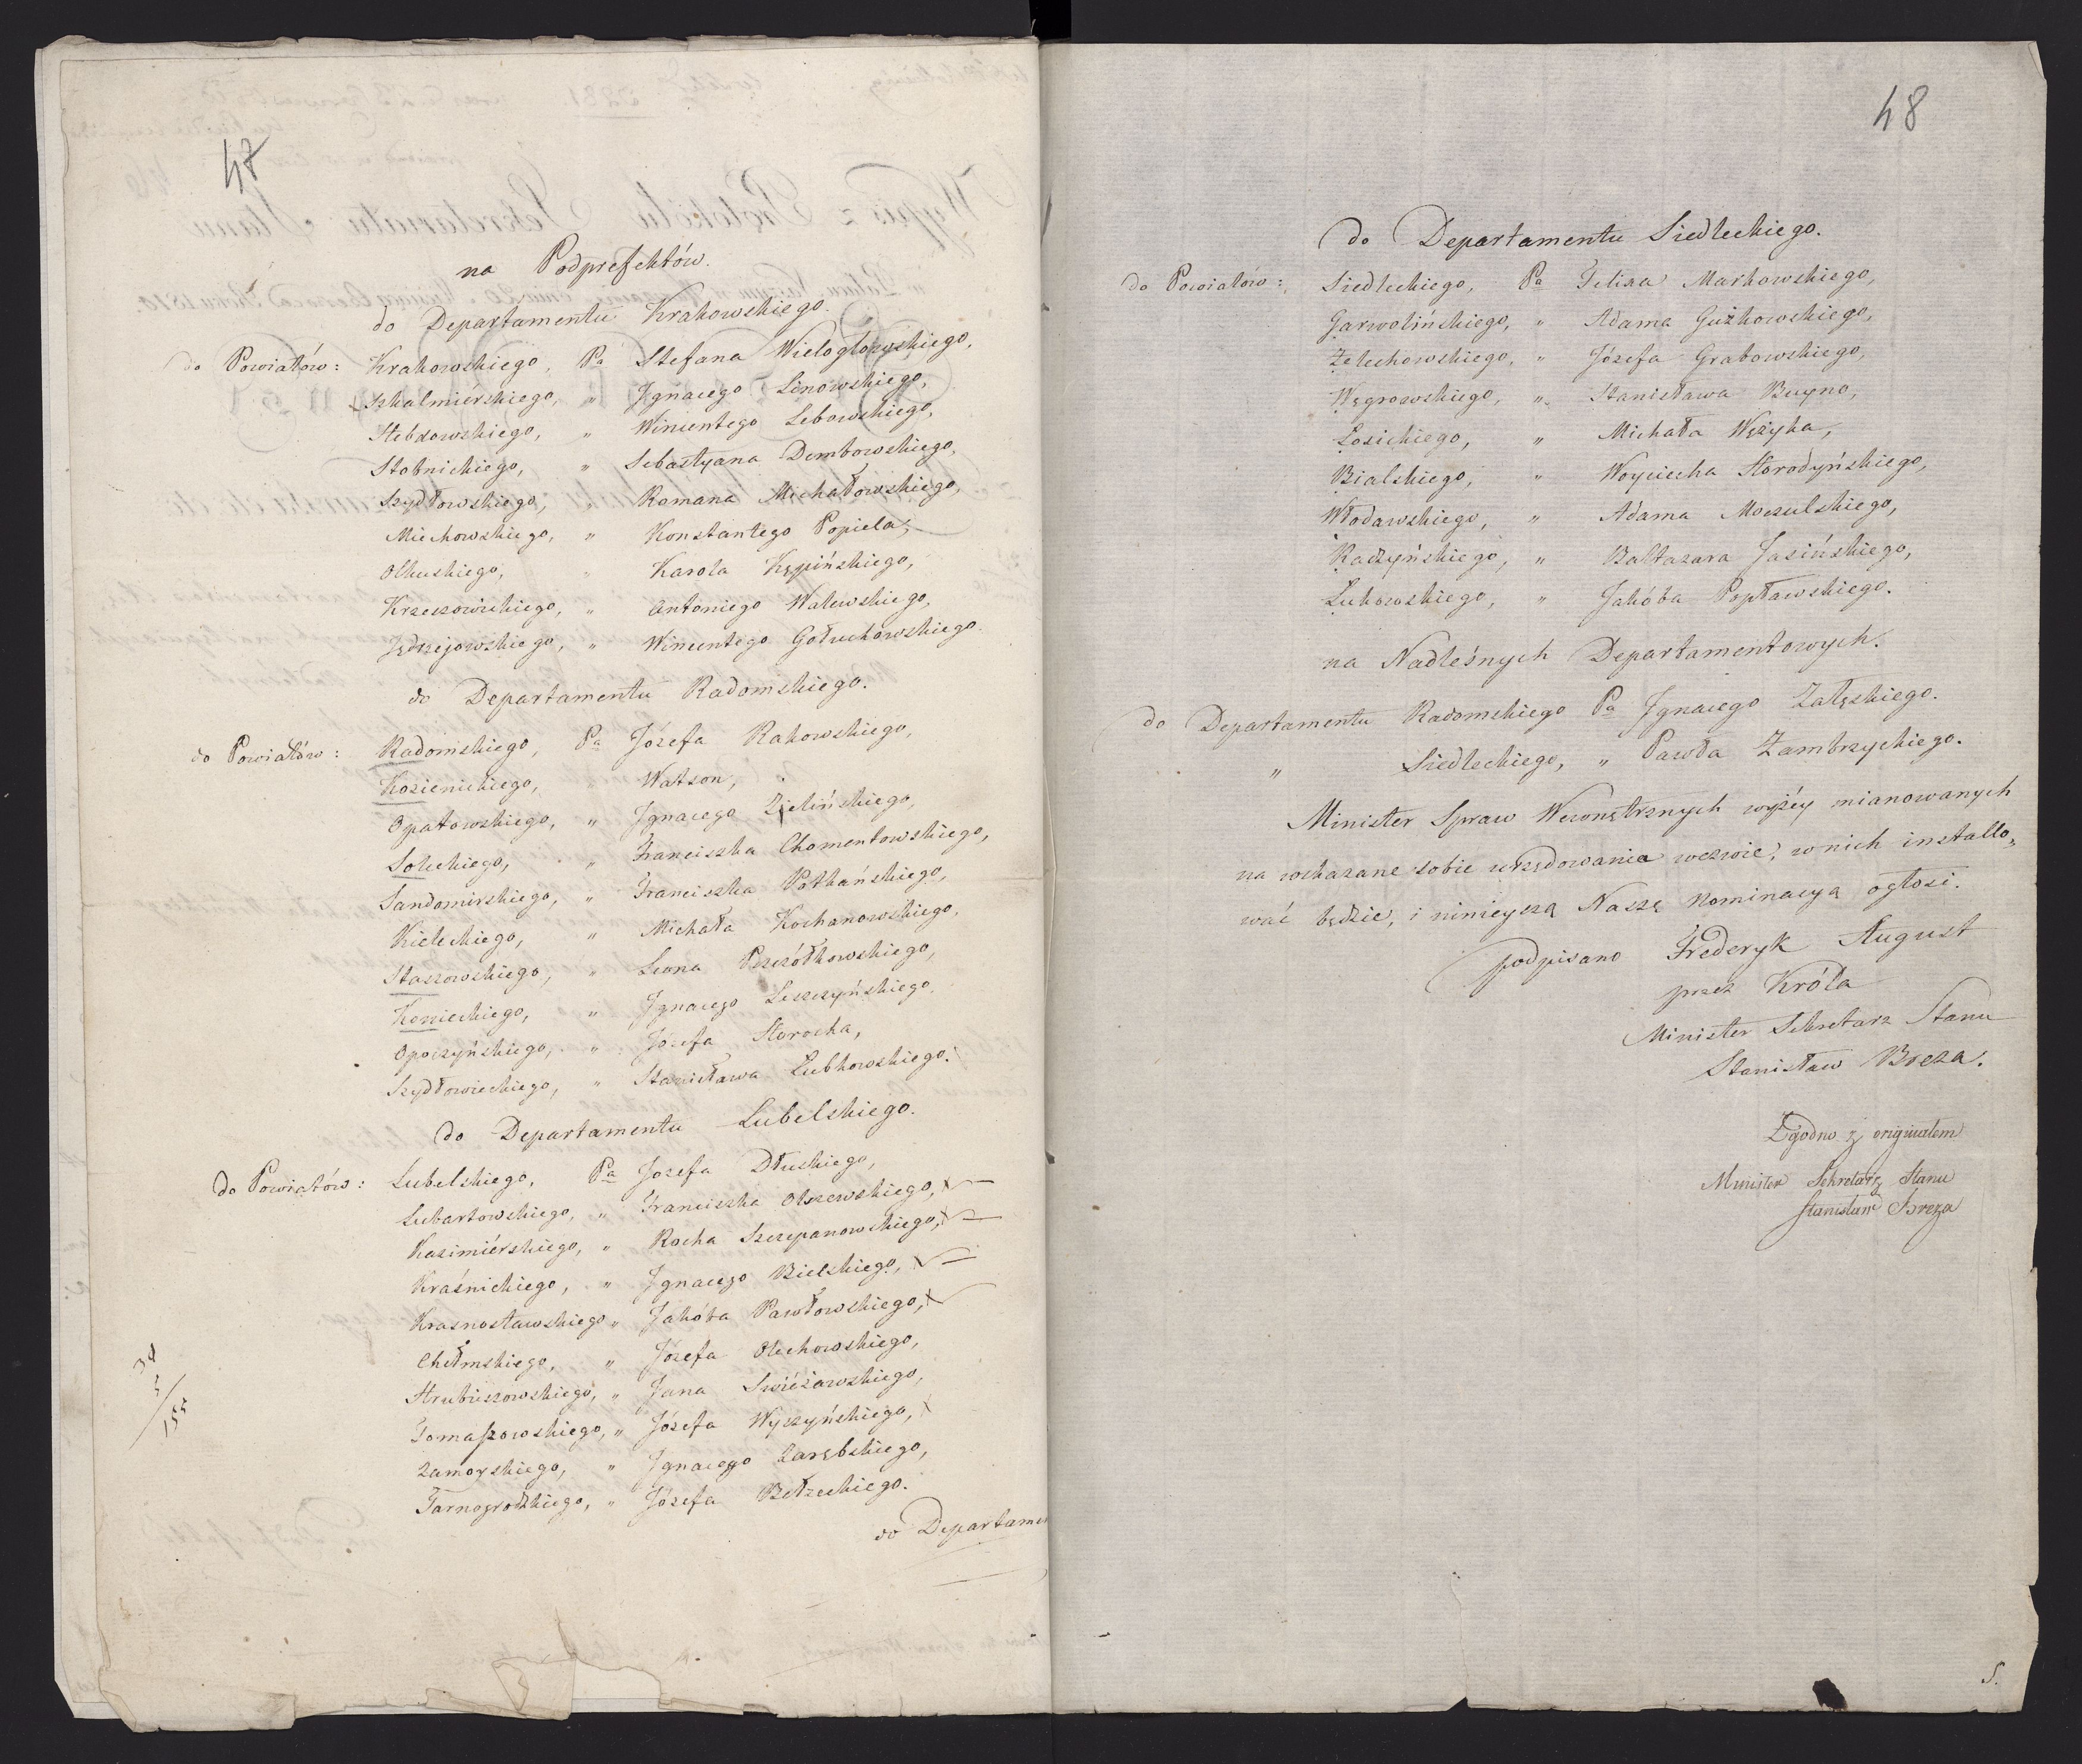 47
na Podprefektów.
do Departamentu Krakowskiego.
do Powiatów: Krakowskiego, Pa Stefana Wielogłowskiego,
Szkalmiérskiego, " Jgnacego Linowskiego,
Hebdowskiego, " Wincentego Lebowskiego,
Stobnickiego, " Sebastyana Dembowskiego,
Szydłowskiego, Romana Michałowskiego,
Miechowskiego, " Konstantego Popiela,
Olkuskiego, " Karola Kępińskiego,
Krzeszowickiego, " Antoniego Walewskiego,
Jędrzejowskiego, " Wincentego Gołuchowskiego.
do Departamentu Radomskiego.
do Powiatów: Radomskiego, Pa Józefa Rakowskiego,
Kozienickiego, " Watson,
Opatowskiego, " Jgnacego Zielińskiego,
Soleckiego, " Franciszka Chomentowskiego,
Sandomirskiego, " Franciszka Potkańskiego,
Kieleckiego, " Michała Kochanowskiego,
Staszowskiego, " Leona Pszczółkowskiego,
Konieckiego, " Jgnacego Leszczyńskiego,
Opoczyńskiego, " Józefa Horocha,
Szydłowieckiego, " Stanisława Łubkowskiego.
do Departamentu Lubelskiego.
do Powiatów: Lubelskiego, Pa Jozefa Dłuskiego,
Lubartowskiego, " Franciszka Olszewskiego,
Kazimiérskiego, " Rocha Szczepanowskiego,
Kraśnickiego, " Jgnacego Bielskiego,
Krasnostawskiego " Jakóba Pawłowskiego,
Chełmskiego, " Józefa Olechowskiego,
Hrubieszowskiego, " Jana Swieżawskiego,
Tomaszowskiego, " Józefa Wyszyńskiego,
Zamoyskiego, " Jgnacego Zarębskiego,
Tarnogrodzkiego, " Józefa Bełzeckiego.
do Departamen
155
48
do Departamentu Siedleckiego.
do Powiatów: Siedleckiego, Pa Felixa Markowskiego,
Garwolińskiego, " Adama Gużkowskiego,
Żelechowskiego, " Józefa Grabowskiego,
Węgrowskiego, " Stanisława Buyno,
Łosickiego, " Michała Wężyka,
Bialskiego, " Woyciecha Horodyńskiego,
Włodawskiego, " Adama Moczulskiego,
Radzyńskiego, " Baltazara Jasińskiego,
Łukowskiego, " Jakóba Popławskiego.
na Nadleśnych Departamentowych.
do Departamentu Radomskiego Pa Jgnacego Załęskiego.
" Siedleckiego, " Pawła Zambrzyckiego.
Minister Spraw Wewnętrznych wyżéy mianowanych
na wskazane sobie urzędowania wezwie, w nich installo„
wać będzie, i ninieyszą Naszę Nominacyą ogłosi.
podpisano Frederyk August
przez Króla
Minister Sekretarz Stanu
Stanisław Breza.
Zgodno z originałem
Minister Sekretarz Stanu
Stanisław Breza
S.